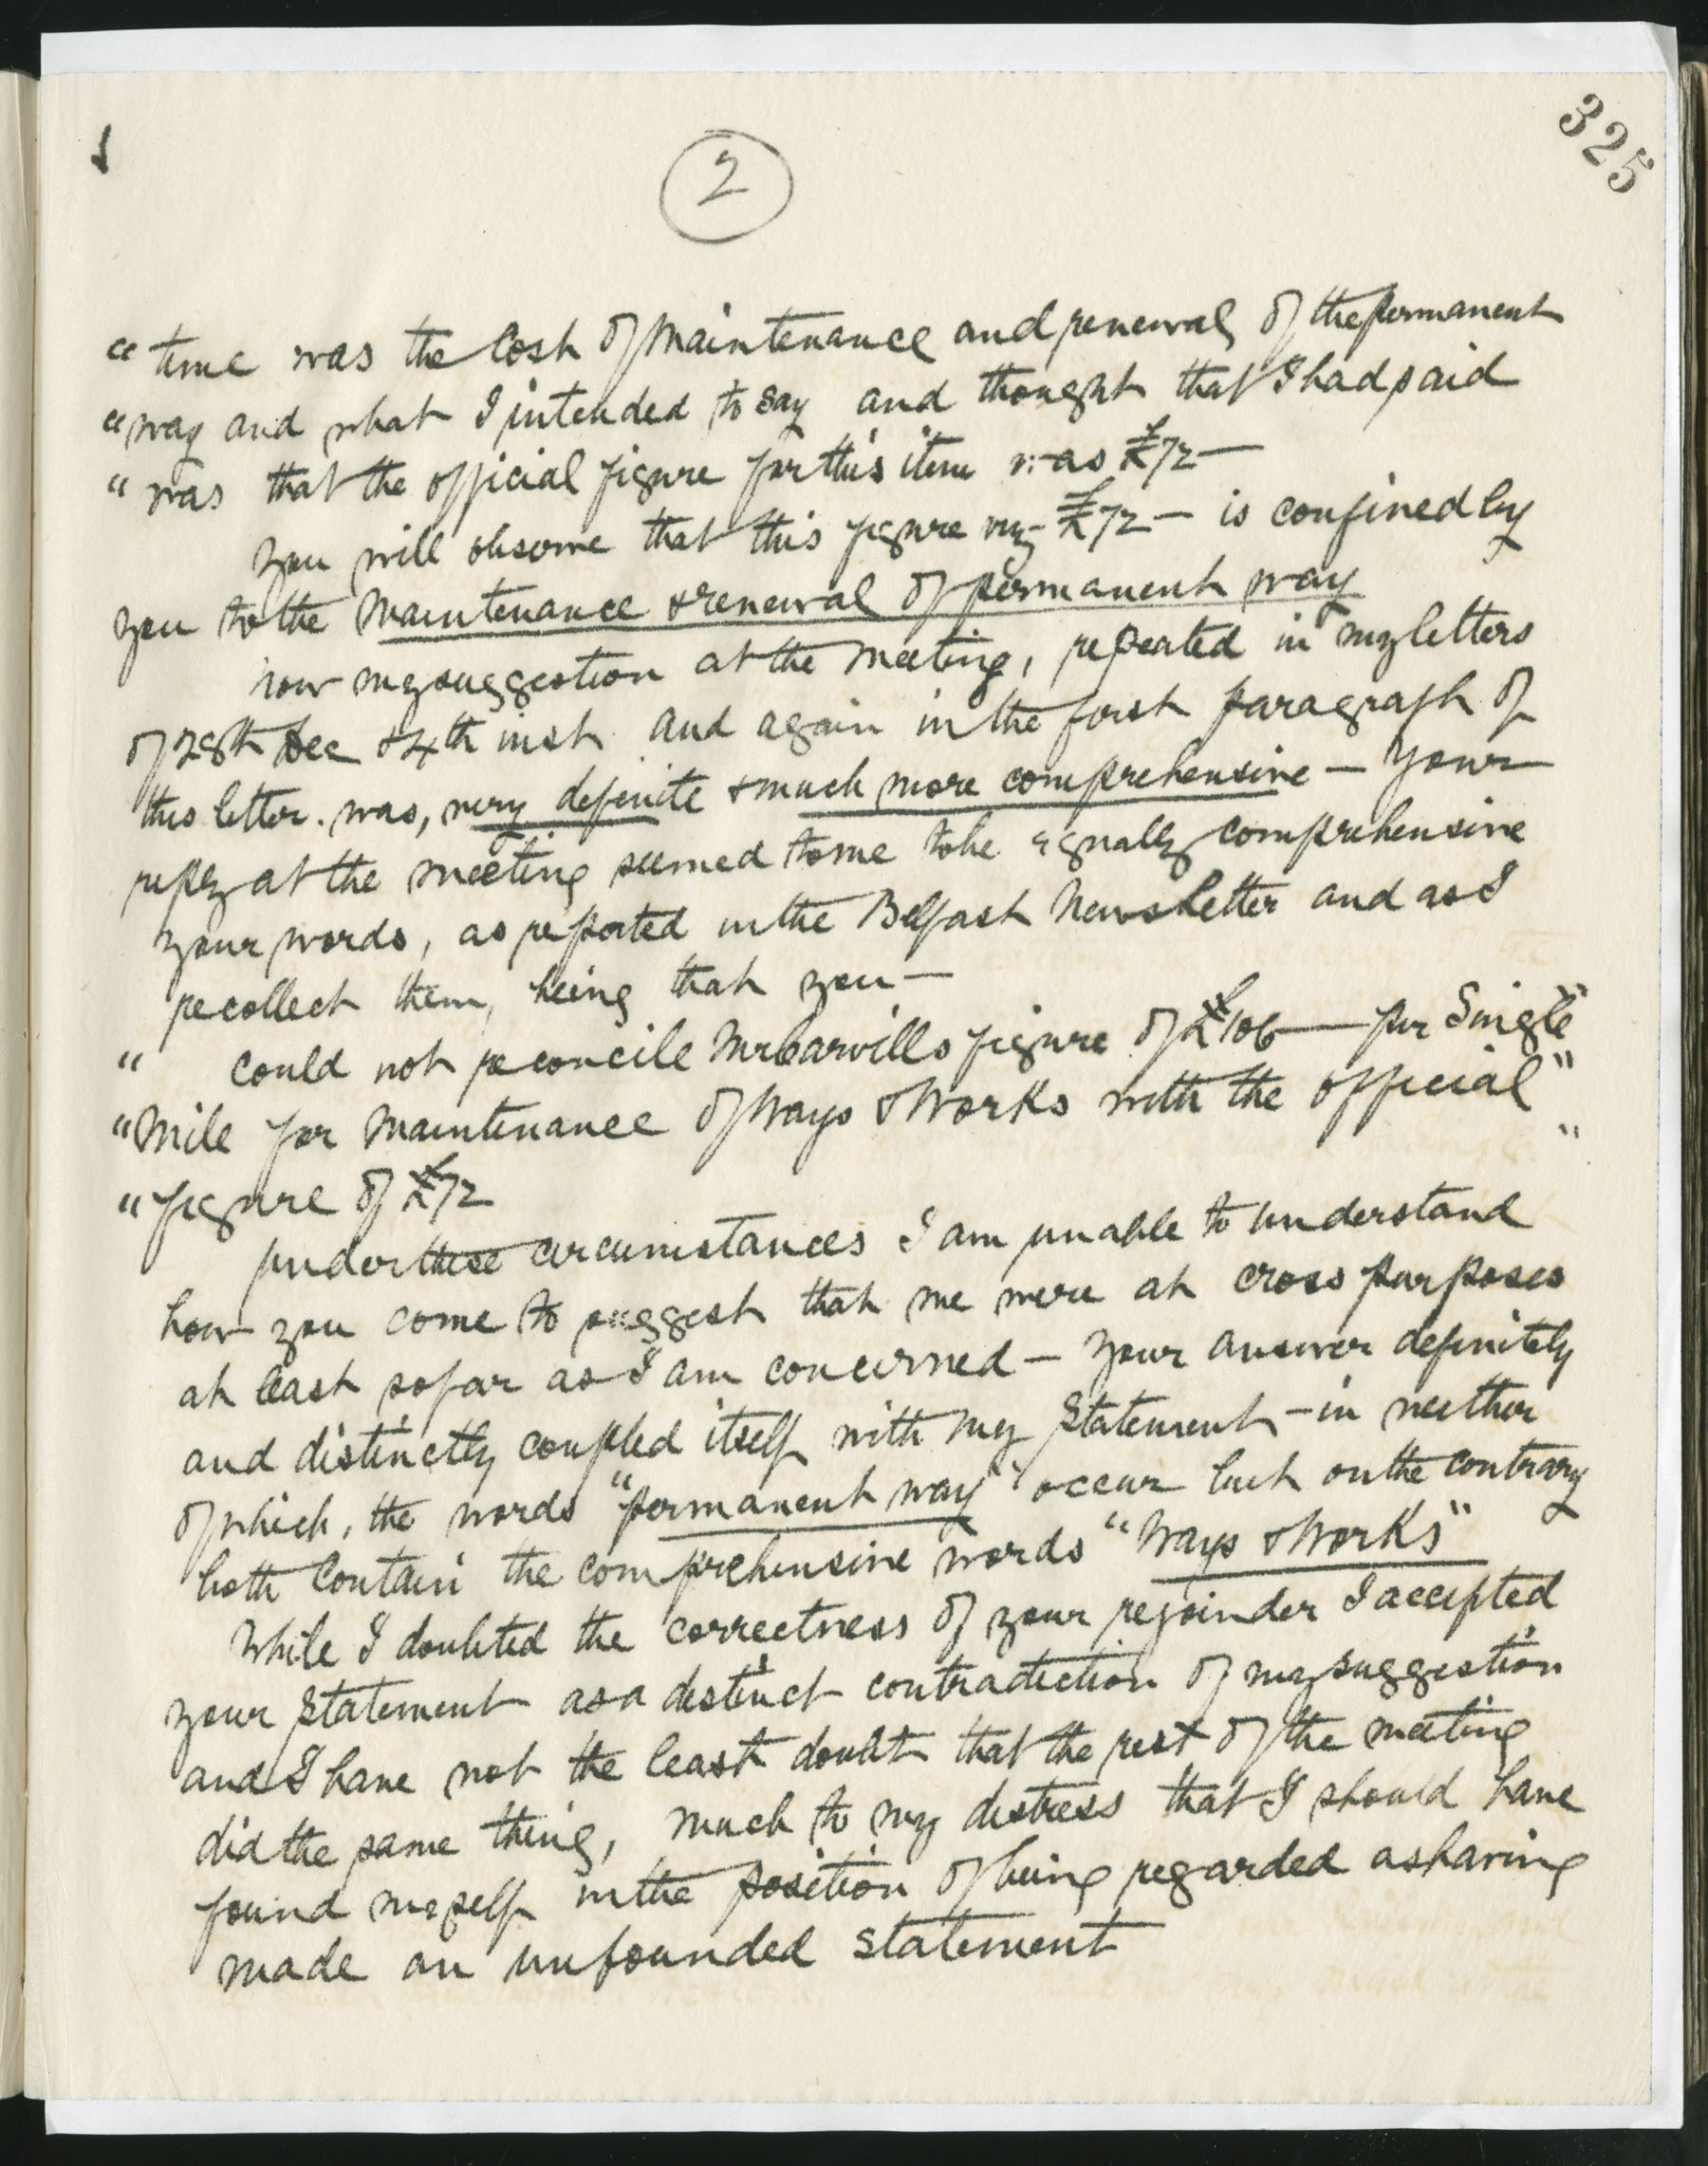 325
2
" time was the Cost of Maintenance and renewal of the permanent
" way and what I intended to say and thought that I had said
" was that the official figure for this item was £72 —
You will observe that this figure viz £72 — is confined by
you to the Maintenance & renewal of permanent way
Now my suggestion at the Meeting, repeated in my letters
of 28th Dec & 4th inst and again in the first paragraph of
this letter. was, very definite & much more comprehensive — Your
reply at the meeting seemed to me to be equally comprehensive
your words, as reported in the Belfast Newsletter and as I
recollect them, being that you —
" could not reconcile Mr Carvills figure of £106 — per Single "
" Mile for Maintenance of Ways & Works with the official "
" figure of £72 "
Under these circumstances I am unable to understand
how you come to suggest that we were at cross purposes
at least so far as I am concerned — Your answer definitely
and distinctly coupled itself with my Statement — in neither
of which, the words "permanent way" occur but on the contrary
both Contain the comprehensive words "Ways & Works"
While I doubted the correctness of your rejoinder I accepted
your statement as a distinct contradiction of my suggestion
and I have not the least doubt that the rest of the meeting
did the same thing, much to my distress that I should have
found myself in the position of being regarded as having
made an unfounded statement